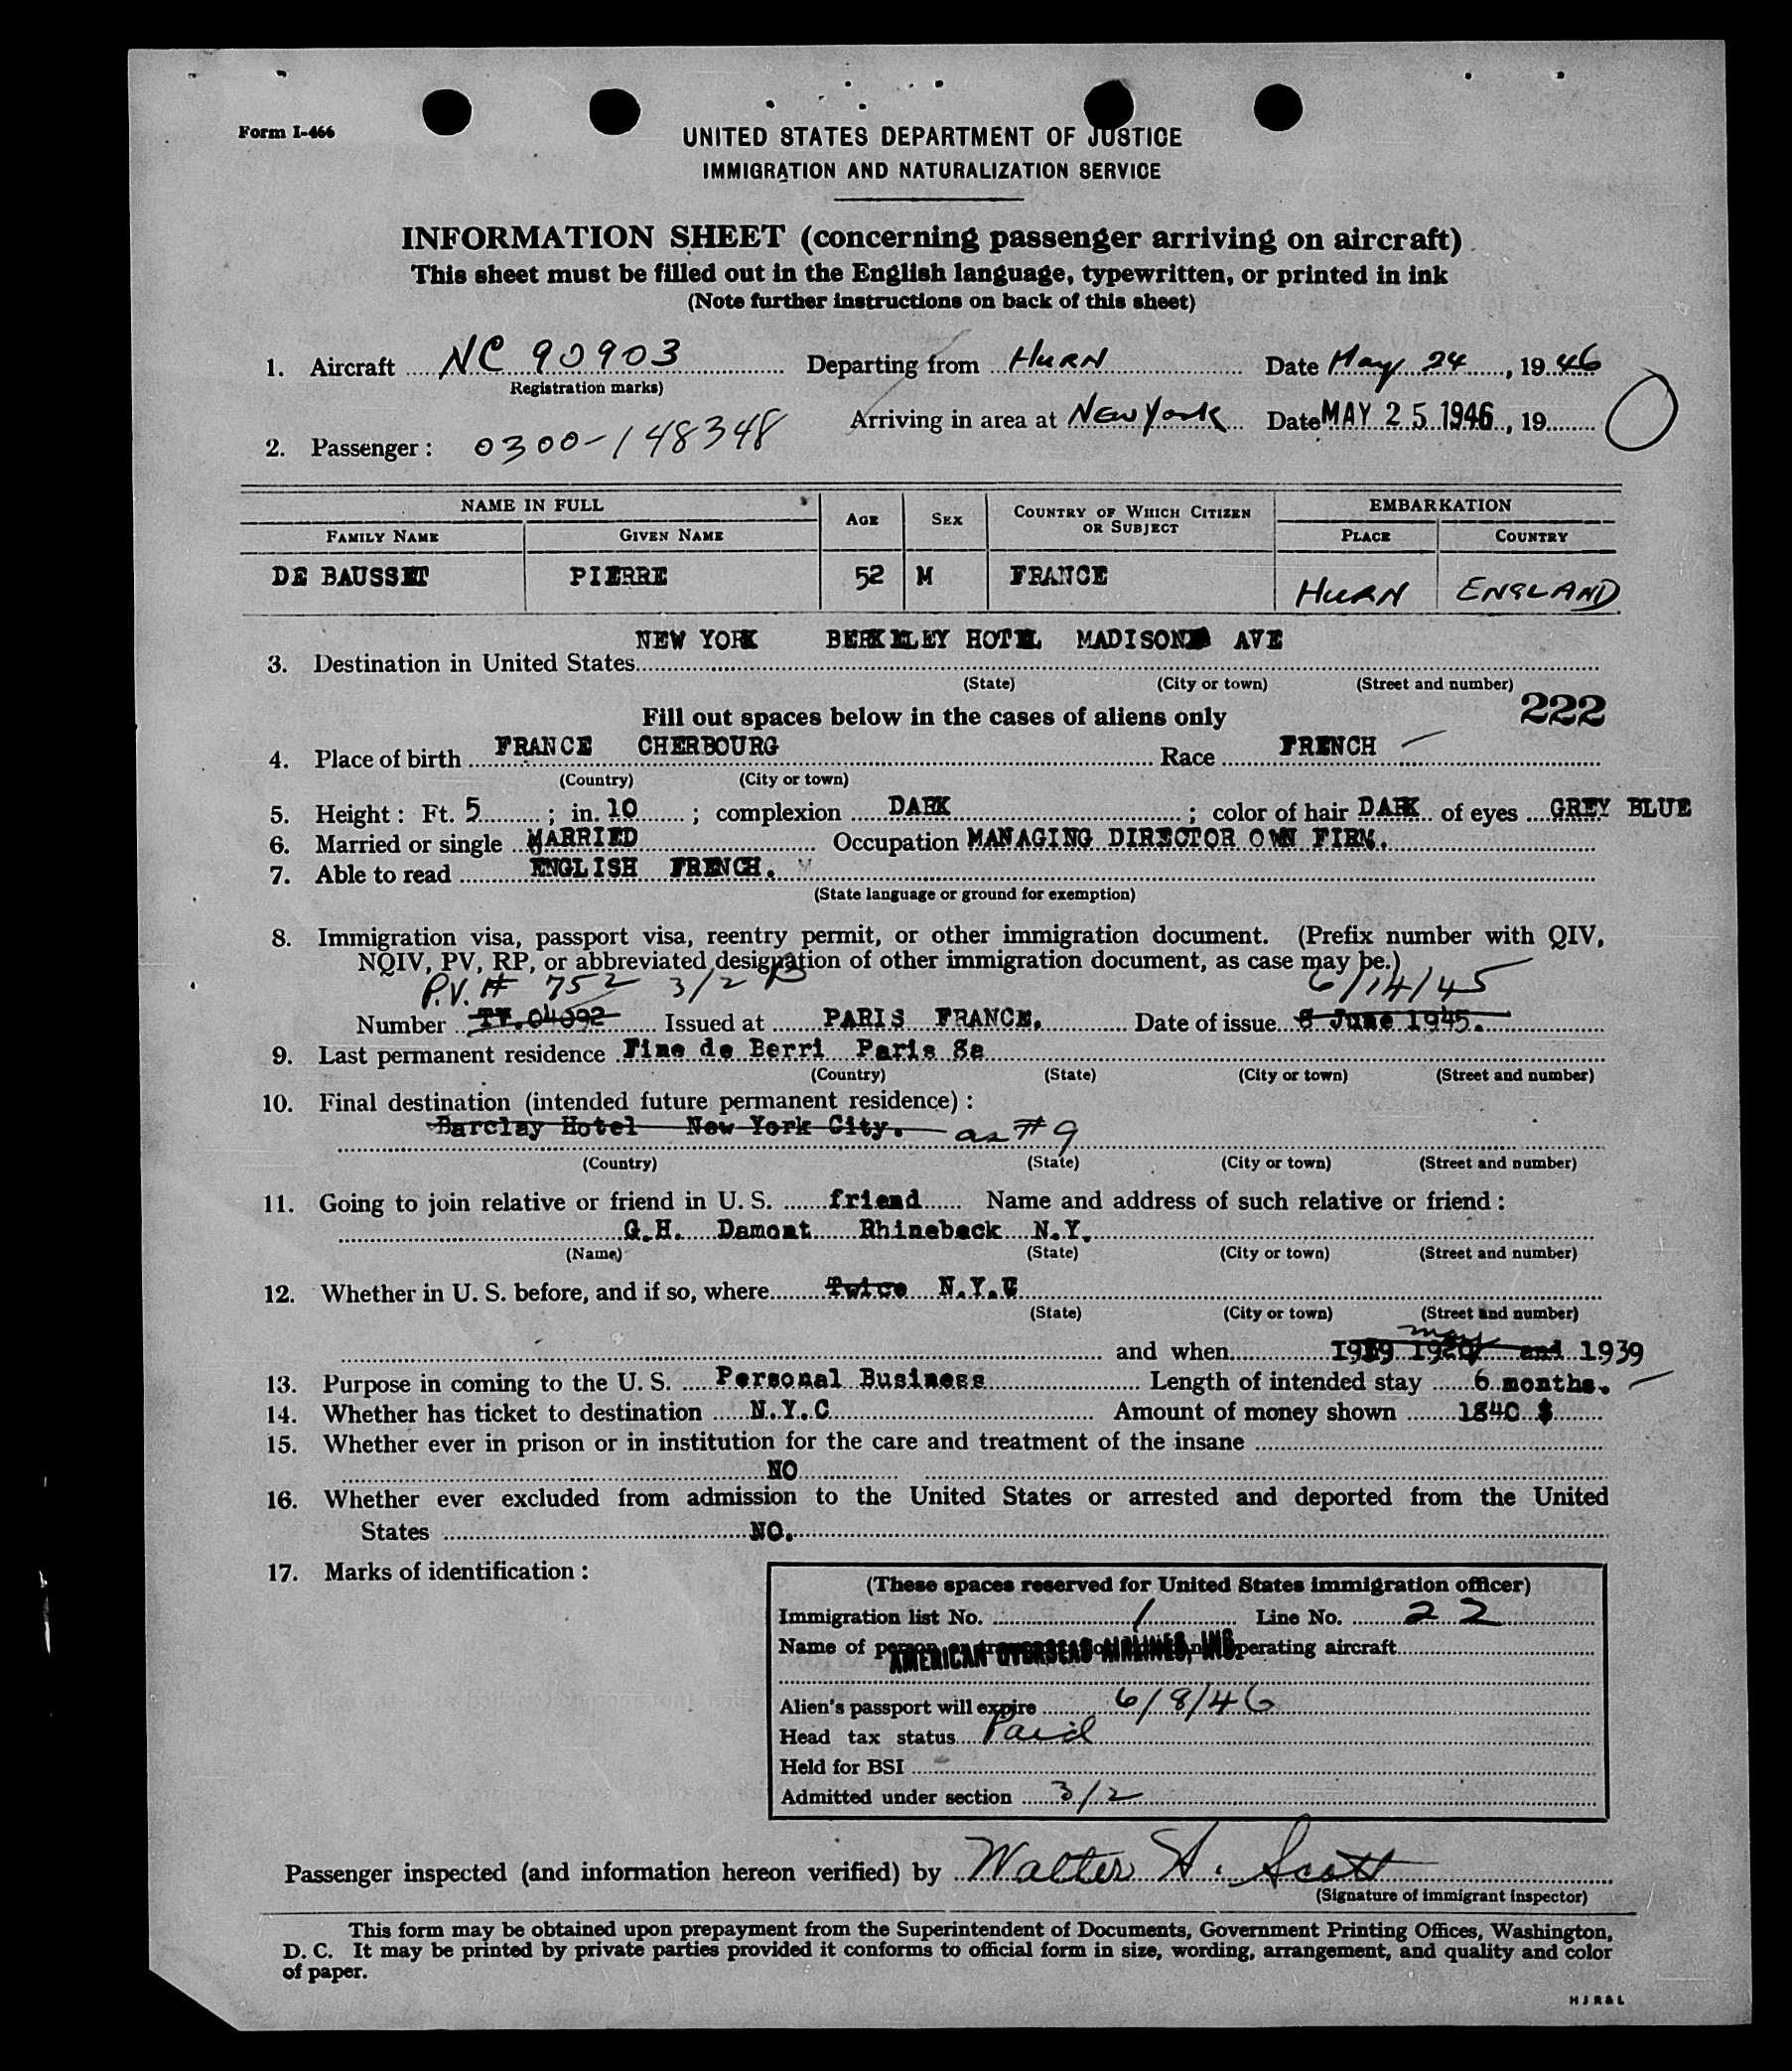 Form I-466
UNITED STATES DEPARTMENT OF JUSTICE
IMMIGRATION AND NATURALIZATION SERVICE
INFORMATION SHEET (concerning passenger arriving on aircraft)
This sheet must be filled out in the English language, typewritten, or printed in ink
(Note further instructions on back of this sheet)
1. Aircraft NC 90903 Departing from HURN Date May 24, 1946
(Registration marks)
Arriving in area at New York Date MAY 25 1946, 19 O
2. Passenger: 0300-148348
NAME IN FULL AGE SEX COUNTRY OF WHICH CITIZEN OR SUBJECT EMBARKATION
FAMILY NAME GIVEN NAME PLACE COUNTRY
DE BAUSSET PIERRE 52 M FRANCE HURN ENGLAND
NEW YORK BERKELEY HOTEL MADISON AVE
3. Destination in United States
(State) (City or town) (Street and number)
222
Fill out spaces below in the cases of aliens only
4. Place of birth FRANCE CHERBOURG Race FRENCH
(Country) (City or town)
5. Height: Ft. 5; in. 10; complexion DARK; color of hair DARK of eyes GREY BLUE
6. Married or single MARRIED Occupation MANAGING DIRECTOR OWN FIRM.
7. Able to read ENGLISH FRENCH.
(State language or ground for exemption)
8. Immigration visa, passport visa, reentry permit, or other immigration document. (Prefix number with QIV,
NQIV, PV, RP, or abbreviated designation of other immigration document, as case may be.)
P.V. # 752 3/2 B 6/14/45
Number Issued at PARIS FRANCE. Date of issue 8 June 1945.
9. Last permanent residence de Berri Paris 8e
(Country) (State) (City or town) (Street and number)
10. Final destination (intended future permanent residence):
Barclay Hotel New York City. as # 9
(Country) (State) (City or town) (Street and number)
11. Going to join relative or friend in U. S. friend Name and address of such relative or friend:
G.H. Damont Rhinebeck N.Y.
(Name) (State) (City or town) (Street and number)
12. Whether in U. S. before, and if so, where Twice N.Y.C
(State) (City or town) (Street and number)
may
and when and 1939
13. Purpose in coming to the U. S. Personal Business Length of intended stay 6 months.
14. Whether has ticket to destination N.Y.C Amount of money shown 1840 $
15. Whether ever in prison or in institution for the care and treatment of the insane
NO
16. Whether ever excluded from admission to the United States or arrested and deported from the United
States NO.
17. Marks of identification:
(These spaces reserved for United States immigration officer)
Immigration list No. 1 Line No. 22
Name of operating aircraft
AMERICAN OVERSEAS AIRLINES, INC
Alien's passport will expire 6/8/46
Head tax status Paid
Held for BSI
Admitted under section 3/2
Passenger inspected (and information hereon verified) by Walter A. Scott
(Signature of immigrant inspector)
This form may be obtained upon prepayment from the Superintendent of Documents, Government Printing Offices, Washington,
D. C. It may be printed by private parties provided it conforms to official form in size, wording, arrangement, and quality and color
of paper.
H J R & L